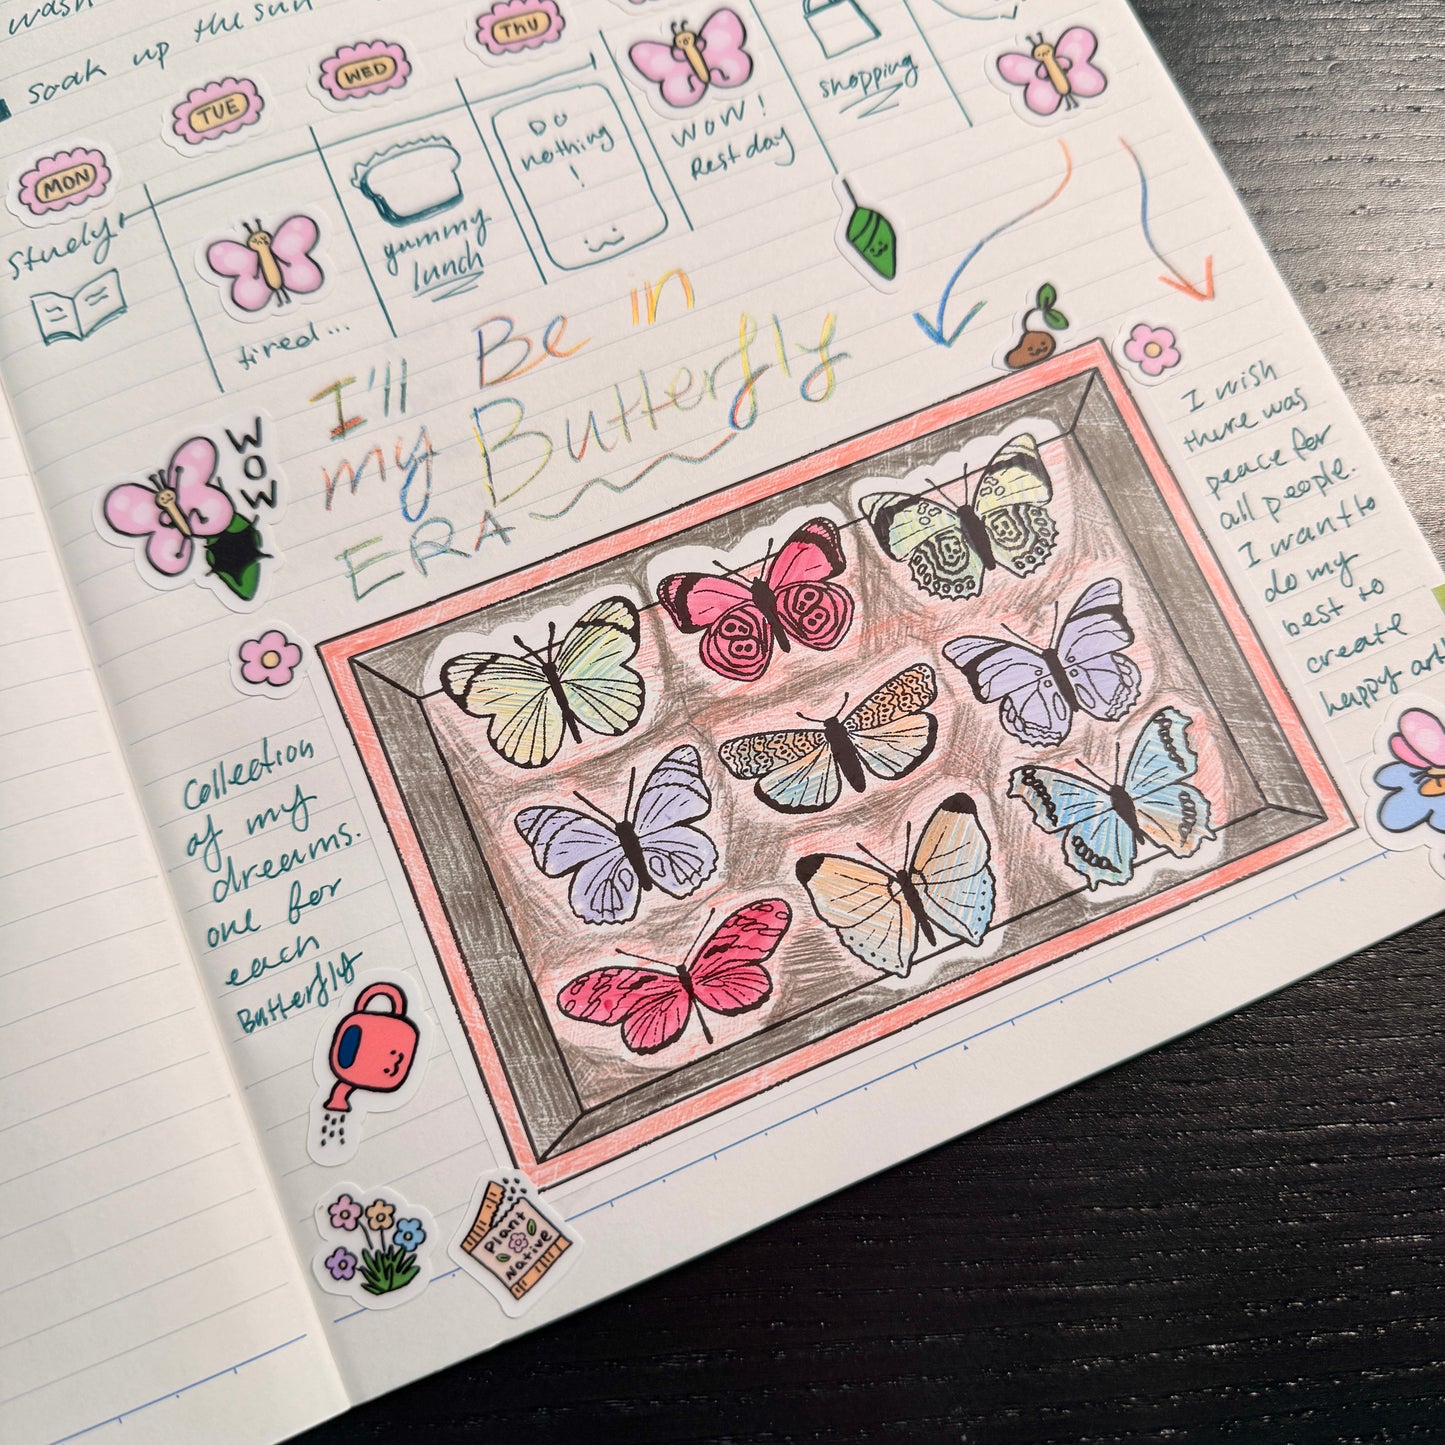 wash
soak up the sun
MON
TUE
WED
THU
study
tired...
yummy
lunch
DO
nothing
!
WOW!
Rest day
shopping
I'll Be in
my Butterfly
ERA
WOW
I wish
there was
peace for
all people.
I want to
do my
best to
create
happy art
Collection
of my
dreams.
one for
each
Butterfly
Plant
Native